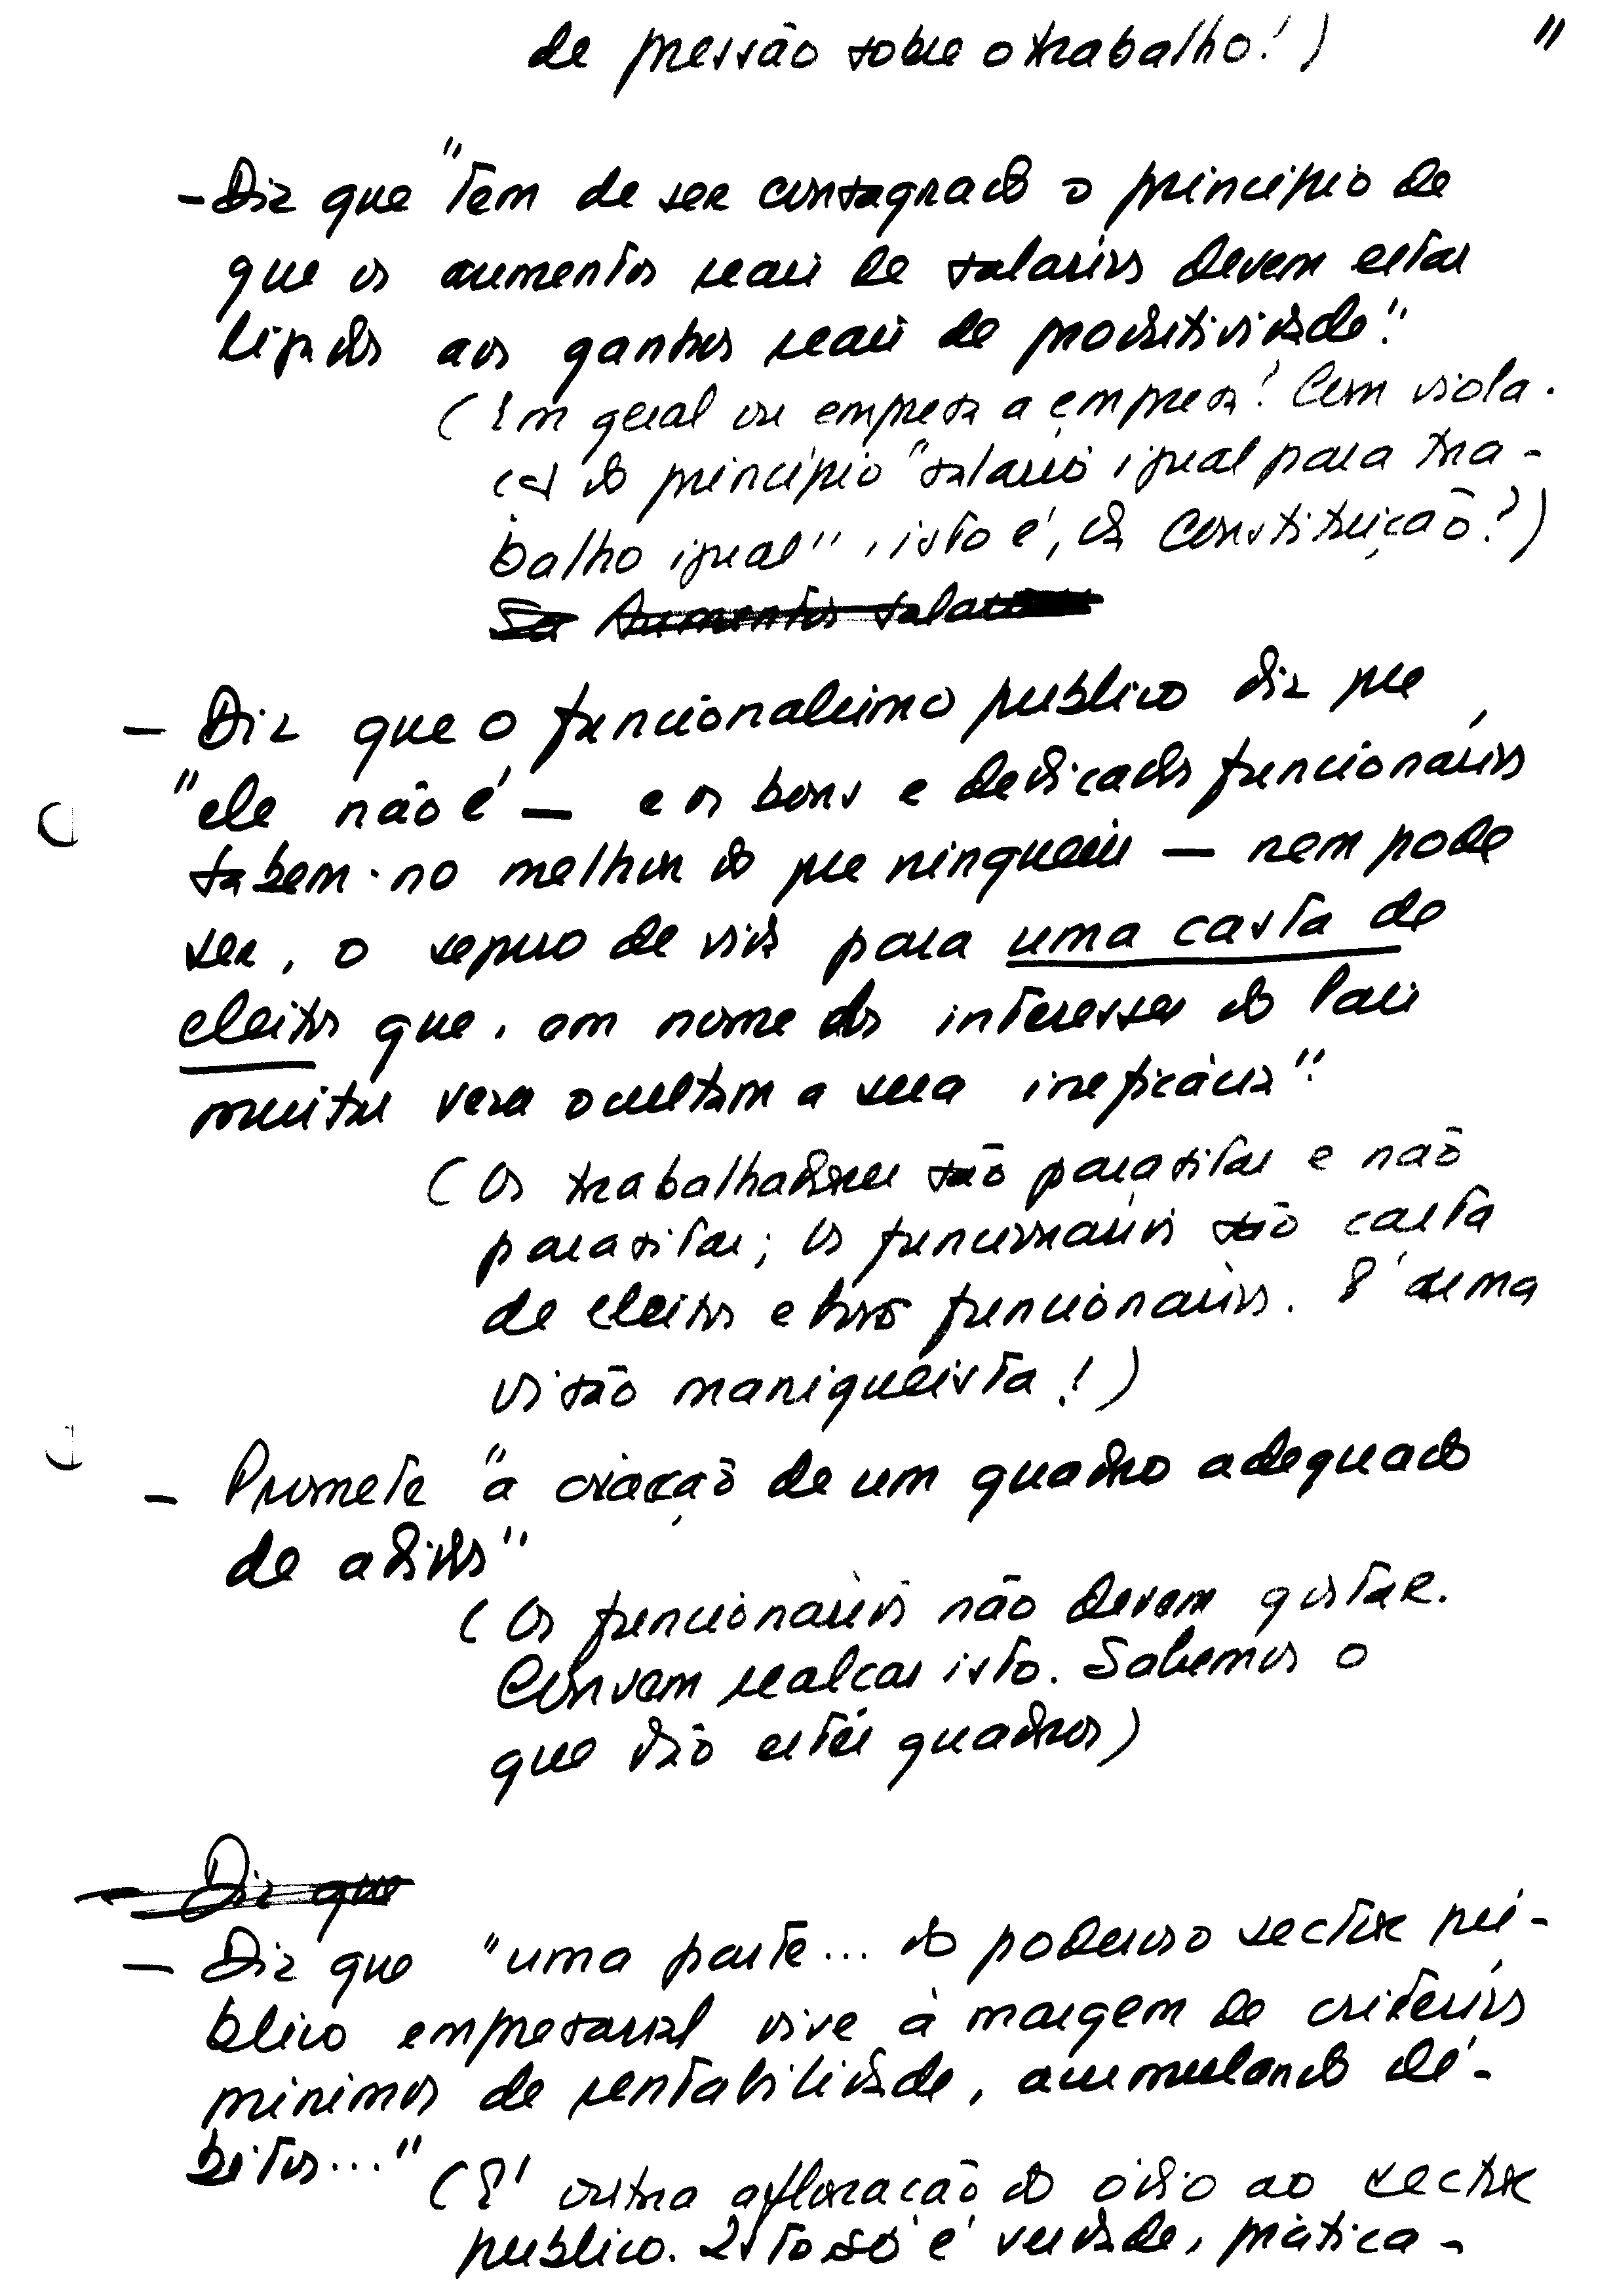 de pressão sobre o trabalho!) 11
- Diz que "Tem de ser consagrado o principio de
que os aumentos reais de salarios devem estar
ligados aos ganhos reais de produtividade".
(Em geral ou empresa a empresa? Com viola-
ção do principio "salario igual para tra-
balho igual", isto é, da Constituição?)
Sa Aumentos
- Diz que o funcionalismo publico diz que
"ele não é — e os bons e dedicados funcionários
sabem-no melhor do que ninguem — nem pode
ser, o seguro de vida para uma casta de
eleitos que, em nome dos interesses do Pais
muitas vezes ocultam a sua ineficácia".
(Os trabalhadores são parasitas e não
parasitas; os funcionarios são casta
de eleitos e bons funcionários. É uma
visão maniqueista!)
- Promete "a criação de um quadro adequado
de adidos"
(Os funcionarios não devem gostar.
Convem realçar isto. Sabemos o
que são estes quadros)
- Diz que
- Diz que "uma parte... do poderoso sector pú-
blico empresarial vive à margem de critérios
minimos de rentabilidade, acumulando dé-
bitos..." (É outra afloração do ódio ao sector
publico. Isto só é verdade, prática-